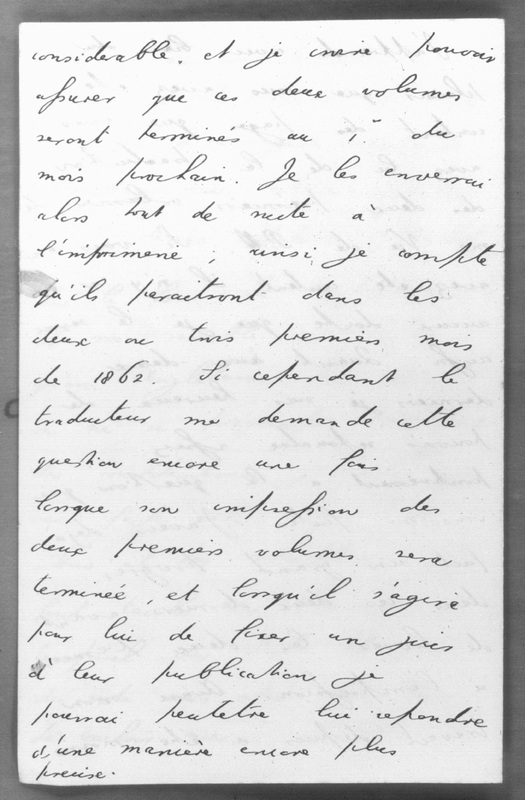 considerable, et je crois pouvoir
assurer que ces deux volumes
seront terminés au 1er du
mois prochain. Je les enverrai
alors tout de suite à
l'imprimerie ; ainsi je compte
qu'ils paraitront dans les
deux ou trois premiers mois
de 1862. Si cependant le
traducteur me demande cette
question encore une fois
lorsque son impression des
deux premiers volumes sera
terminée, et lorsqu'il s'agira
pour lui de fixer un prix
à leur publication je
pourrai peutetre lui repondre
d'une manière encore plus
precise.